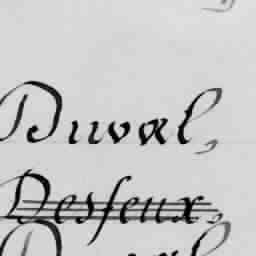 Duval,
Desfeux,